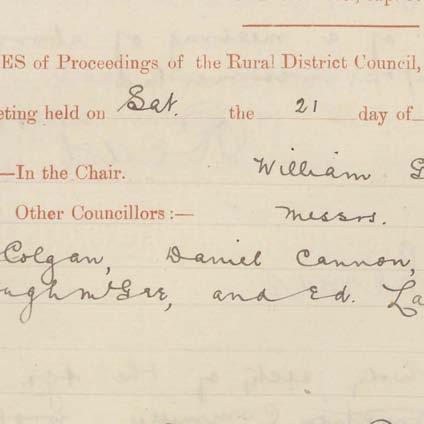 ES of Proceedings of the Rural District Council,
eting held on Sat. the 21 day of
—In the Chair. William G
Other Councillors:— Messrs.
Colgan, Daniel Cannon,
ugh McGee, and Ed. La